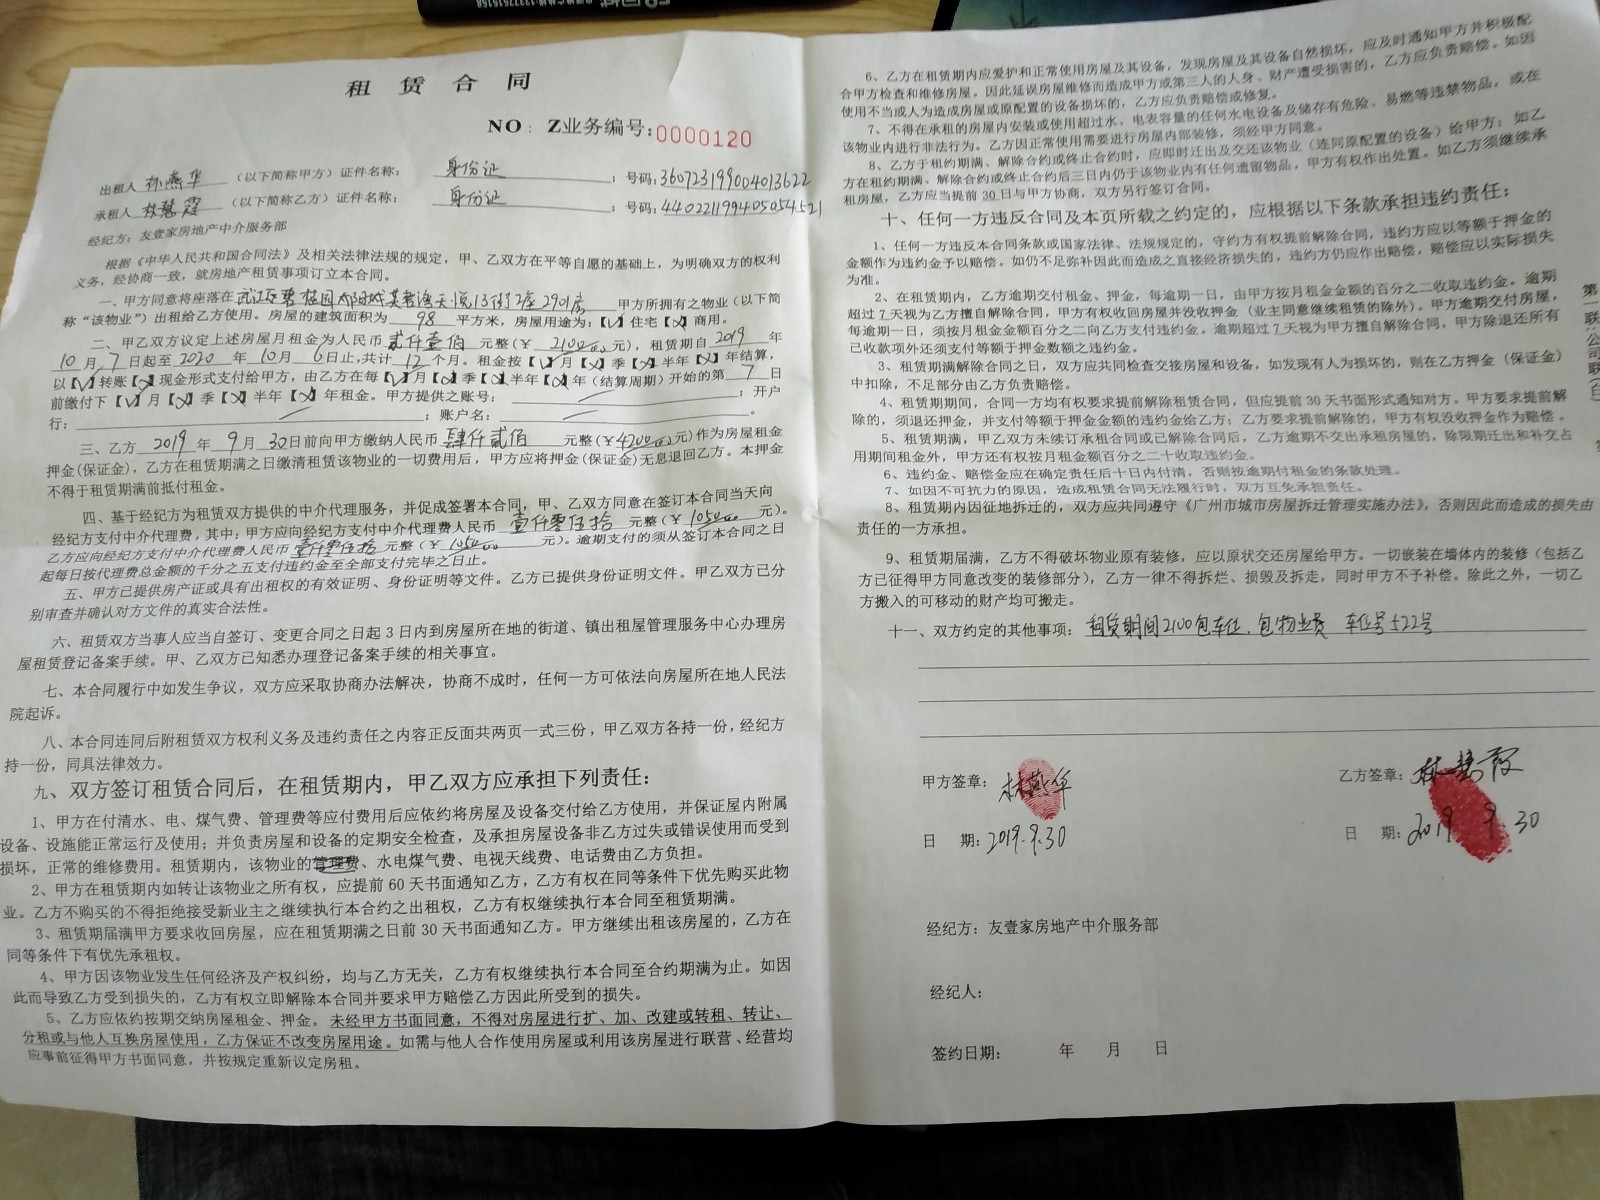 租 赁 合 同
NO： Z业务编号:0000120
出租人 林燕华 （以下简称甲方）证件名称： 身份证 ；号码:360723199004013622
承租人 林慧霞 （以下简称乙方）证件名称： 身份证 ；号码:440221199405054521
经纪方：友壹家房地产中介服务部
根据《中华人民共和国合同法》及相关法律法规的规定，甲、乙双方在平等自愿的基础上，为明确双方的权利
义务，经协商一致，就房地产租赁事项订立本合同。
一、甲方同意将座落在武江区碧桂园太阳城芙蓉湾天悦13街2座2901房 甲方所拥有之物业（以下简
称“该物业”）出租给乙方使用。房屋的建筑面积为 98 平方米，房屋用途为：【√】住宅【×】商用。
二、甲乙双方议定上述房屋月租金为人民币 贰仟壹佰 元整（￥ 2100.00 元），租赁期自 2019 年
10 月 7 日起至 2020 年 10 月 6 日止,共计 12 个月。租金按【√】月【×】季【×】半年【×】年结算，
以【√】转账【×】现金形式支付给甲方，由乙方在每【√】月【×】季【×】半年【×】年（结算周期）开始的第 7 日
前缴付下【√】月【×】季【×】半年【×】年租金。甲方提供之账号： ；开户
行： ；账户名： 。
三、乙方 2019 年 9 月 30 日前向甲方缴纳人民币 肆仟贰佰 元整（￥4200.00元）作为房屋租金
押金(保证金)，乙方在租赁期满之日缴清租赁该物业的一切费用后，甲方应将押金(保证金)无息退回乙方。本押金
不得于租赁期满前抵付租金。
四、基于经纪方为租赁双方提供的中介代理服务，并促成签署本合同，甲、乙双方同意在签订本合同当天向
经纪方支付中介代理费，其中：甲方应向经纪方支付中介代理费人民币 壹仟零伍拾 元整（￥ 1050.00 元）。
乙方应向经纪方支付中介代理费人民币 壹仟零伍拾 元整（￥ 1050.00 元）。逾期支付的须从签订本合同之日
起每日按代理费总金额的千分之五支付违约金至全部支付完毕之日止。
五、甲方已提供房产证或具有出租权的有效证明、身份证明等文件。乙方已提供身份证明文件。甲乙双方已分
别审查并确认对方文件的真实合法性。
六、租赁双方当事人应当自签订、变更合同之日起 3 日内到房屋所在地的街道、镇出租屋管理服务中心办理房
屋租赁登记备案手续。甲、乙双方已知悉办理登记备案手续的相关事宜。
七、本合同履行中如发生争议，双方应采取协商办法解决，协商不成时，任何一方可依法向房屋所在地人民法
院起诉。
八、本合同连同后附租赁双方权利义务及违约责任之内容正反面共两页一式三份，甲乙双方各持一份，经纪方
持一份，同具法律效力。
九、双方签订租赁合同后，在租赁期内，甲乙双方应承担下列责任：
1、甲方在付清水、电、煤气费、管理费等应付费用后应依约将房屋及设备交付给乙方使用，并保证屋内附属
设备、设施能正常运行及使用；并负责房屋和设备的定期安全检查，及承担房屋设备非乙方过失或错误使用而受到
损坏，正常的维修费用。租赁期内，该物业的管理费、水电煤气费、电视天线费、电话费由乙方负担。
2、甲方在租赁期内如转让该物业之所有权，应提前 60 天书面通知乙方，乙方有权在同等条件下优先购买此物
业。乙方不购买的不得拒绝接受新业主之继续执行本合约之出租权，乙方有权继续执行本合同至租赁期满。
3、租赁期届满甲方要求收回房屋，应在租赁期满之日前 30 天书面通知乙方。甲方继续出租该房屋的，乙方在
同等条件下有优先承租权。
4、甲方因该物业发生任何经济及产权纠纷，均与乙方无关，乙方有权继续执行本合同至合约期满为止。如因
此而导致乙方受到损失的，乙方有权立即解除本合同并要求甲方赔偿乙方因此所受到的损失。
5、乙方应依约按期交纳房屋租金、押金。未经甲方书面同意，不得对房屋进行扩、加、改建或转租、转让、
分租或与他人互换房屋使用，乙方保证不改变房屋用途。如需与他人合作使用房屋或利用该房屋进行联营、经营均
应事前征得甲方书面同意，并按规定重新议定房租。
6、乙方在租赁期内应爱护和正常使用房屋及其设备，发现房屋及其设备自然损坏，应及时通知甲方并积极配
合甲方检查和维修房屋。因此延误房屋维修而造成甲方或第三人的人身、财产遭受损害的，乙方应负责赔偿。如因
使用不当或人为造成房屋或原配置的设备损坏的，乙方应负责赔偿或修复。
7、不得在承租的房屋内安装或使用超过水、电表容量的任何水电设备及储存有危险、易燃等违禁物品，或在
该物业内进行非法行为。乙方因正常使用需要进行房屋内部装修，须经甲方同意。
8、乙方于租约期满、解除合约或终止合约时，应即时迁出及交还该物业（连同原配置的设备）给甲方；如乙
方在租约期满、解除合约或终止合约后三日内仍于该物业内有任何遗留物品，甲方有权作出处置。如乙方须继续承
租房屋，乙方应当提前 30 日与甲方协商，双方另行签订合同。
十、任何一方违反合同及本页所载之约定的，应根据以下条款承担违约责任：
1、任何一方违反本合同条款或国家法律、法规规定的，守约方有权提前解除合同，违约方应以等额于押金的
金额作为违约金予以赔偿。如仍不足弥补因此而造成之直接经济损失的，违约方仍应作出赔偿，赔偿应以实际损失
为准。
2、在租赁期内，乙方逾期交付租金、押金，每逾期一日，由甲方按月租金金额的百分之二收取违约金。逾期
超过 7 天视为乙方擅自解除合同，甲方有权收回房屋并没收押金（业主同意继续租赁的除外）。甲方逾期交付房屋，
每逾期一日，须按月租金金额百分之二向乙方支付违约金。逾期超过 7 天视为甲方擅自解除合同，甲方除退还所有
已收款项外还须支付等额于押金数额之违约金。
3、租赁期满解除合同之日，双方应共同检查交接房屋和设备，如发现有人为损坏的，则在乙方押金（保证金）
中扣除，不足部分由乙方负责赔偿。
4、租赁期期间，合同一方均有权要求提前解除租赁合同，但应提前 30 天书面形式通知对方。甲方要求提前解
除的，须退还押金，并支付等额于押金金额的违约金给乙方；乙方要求提前解除的，甲方有权没收押金作为赔偿。
5、租赁期满，甲乙双方未续订承租合同或已解除合同后，乙方逾期不交出承租房屋的，除限期迁出和补交占
用期间租金外，甲方还有权按月租金额百分之二十收取违约金。
6、违约金、赔偿金应在确定责任后十日内付清，否则按逾期付租金的条款处理。
7、如因不可抗力的原因，造成租赁合同无法履行时，双方互免承担责任。
8、租赁期内因征地拆迁的，双方应共同遵守《广州市城市房屋拆迁管理实施办法》，否则因此而造成的损失由
责任的一方承担。
9、租赁期届满，乙方不得破坏物业原有装修，应以原状交还房屋给甲方。一切嵌装在墙体内的装修（包括乙
方已征得甲方同意改变的装修部分），乙方一律不得拆烂、损毁及拆走，同时甲方不予补偿。除此之外，一切乙
方搬入的可移动的财产均可搬走。
十一、双方约定的其他事项：租赁期间2100包车位、包物业费 车位号522号
甲方签章：林燕华
乙方签章：林慧霞
日 期：2019.9.30
日 期：2019 9 30
经纪方：友壹家房地产中介服务部
经纪人：
签约日期： 年 月 日
第一联：公司联(白)